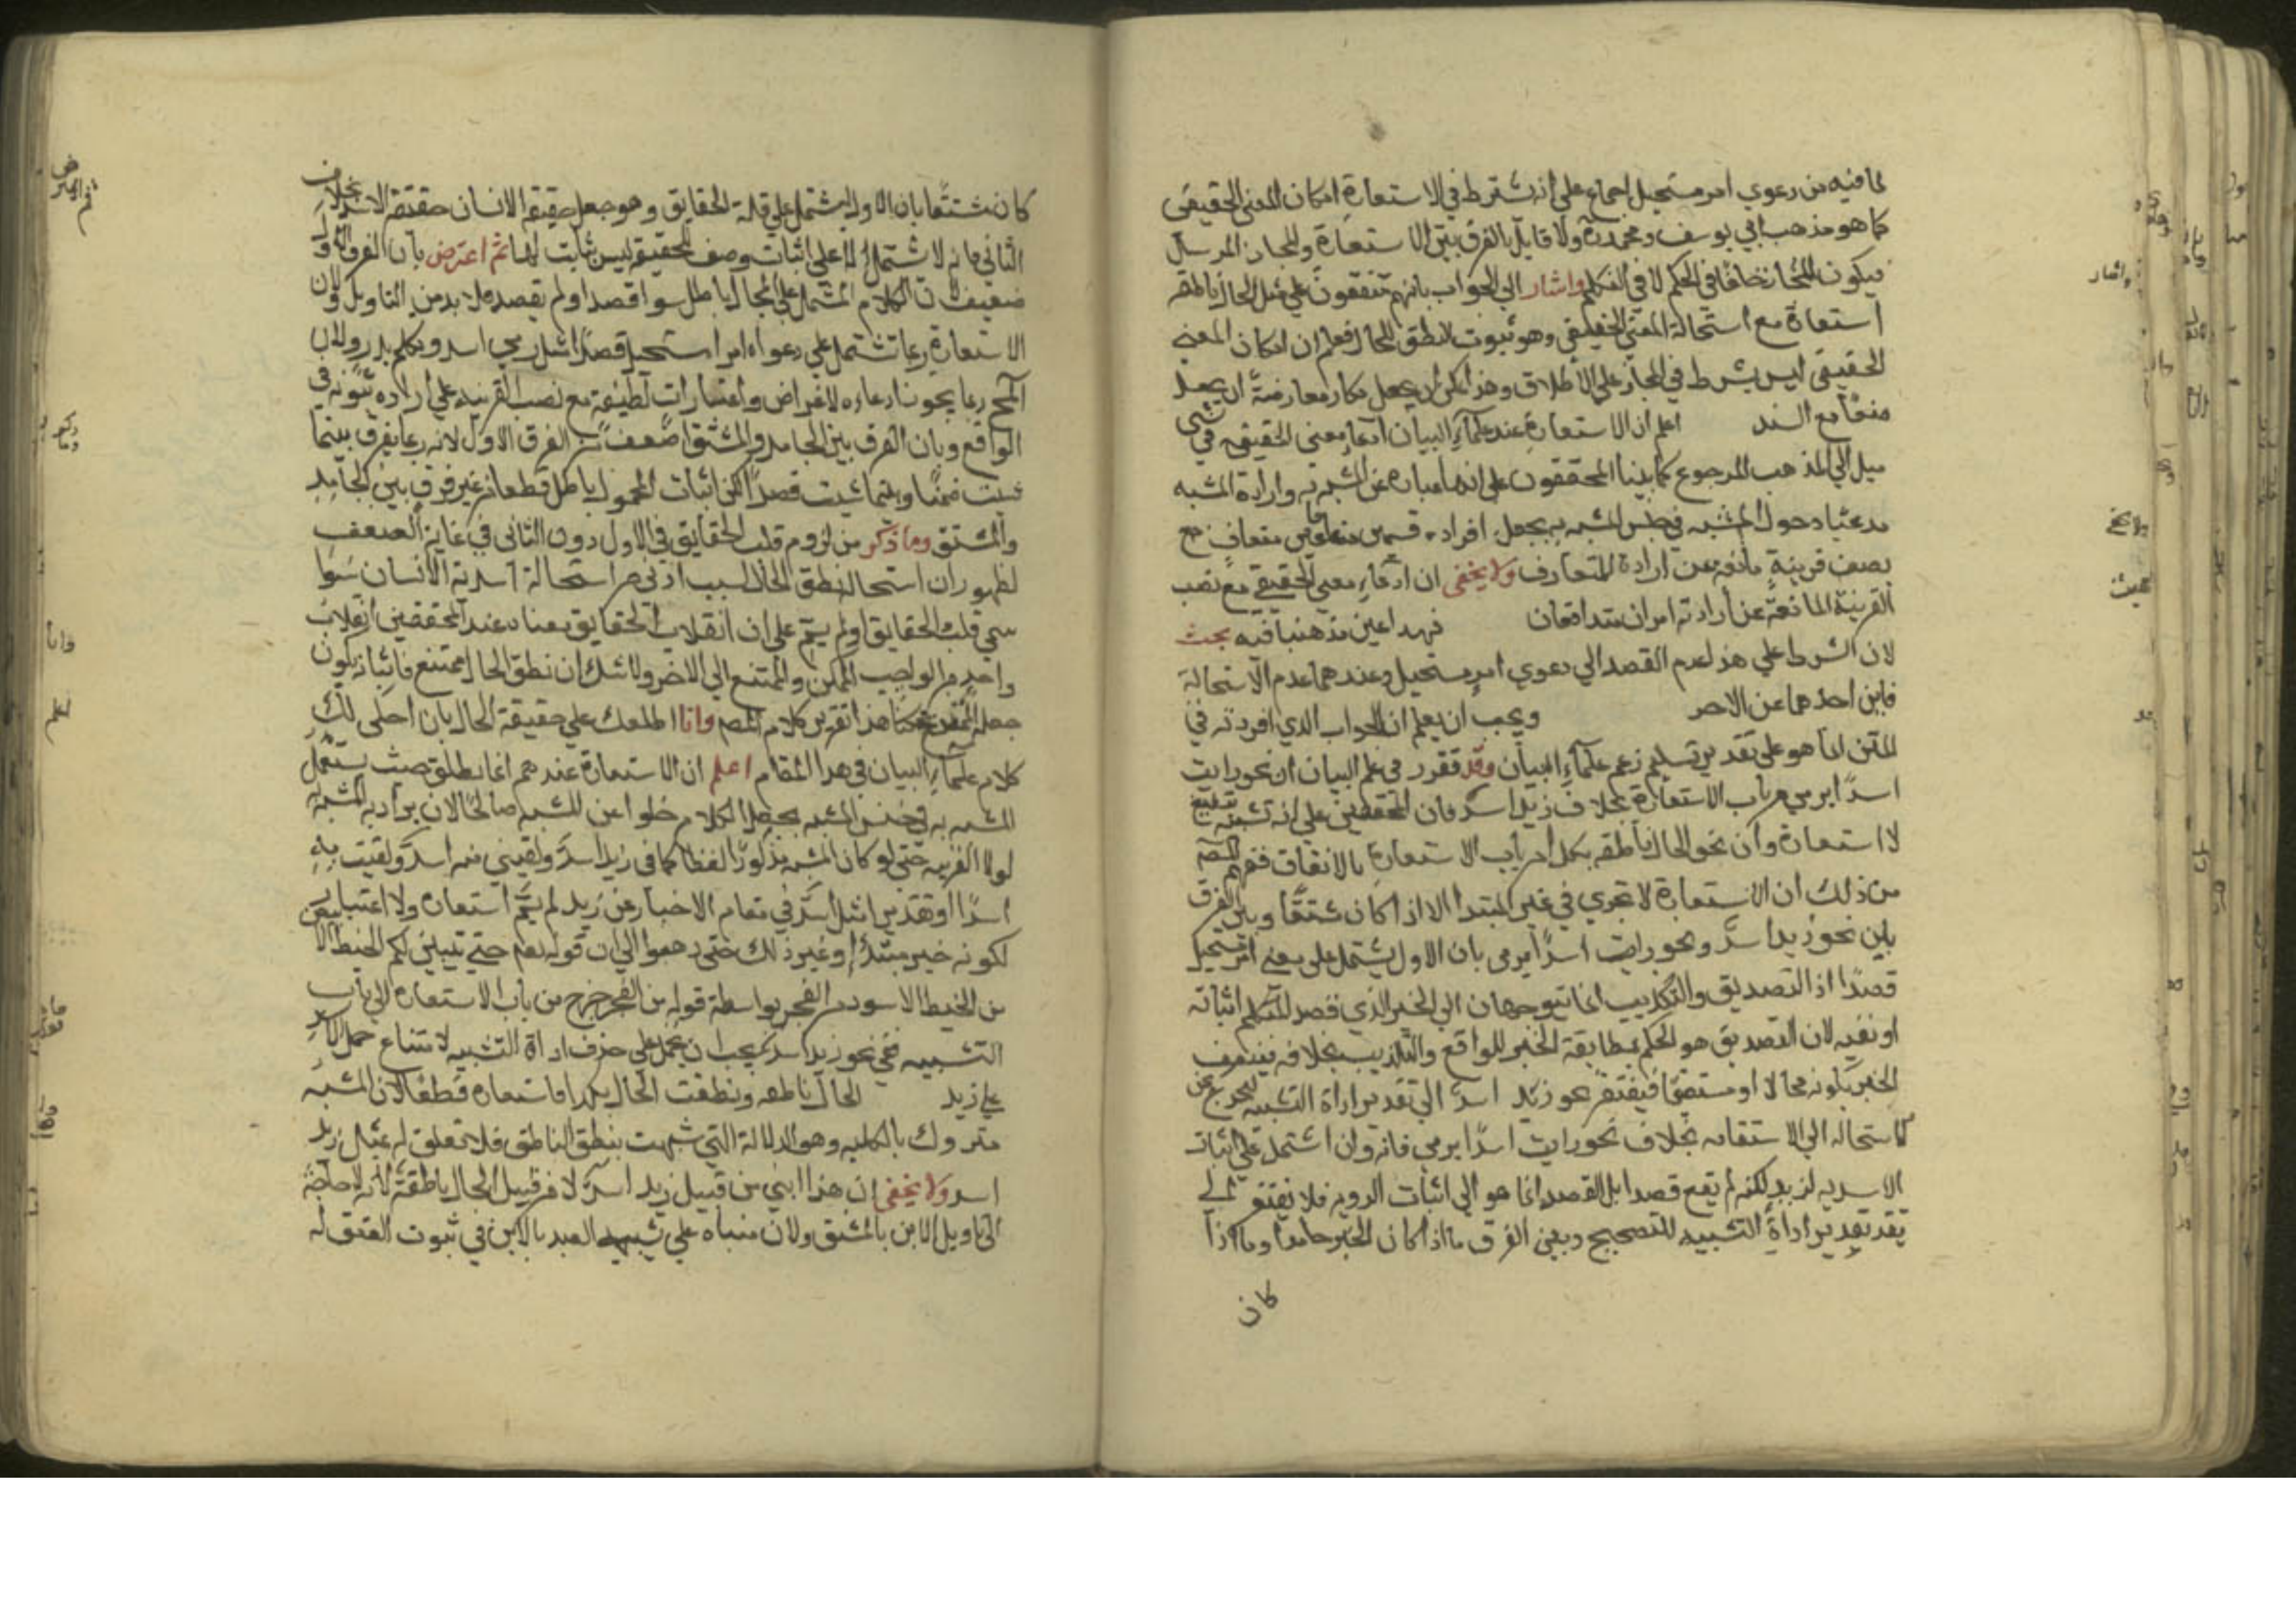 لما فيه من دعوي امر مستحيل اجماع علي انه يشترط في الاستعارة امكان المعني الحقيقي
كما هو مذهب ابي يوسف ومحمد ره ولا قايل بالفرق بين الاستعارة والمجاز المرسل
فيكون المجاز خلفا في الحكم لا في التكلم واشار الي الجواب بانهم متفقون علي مثل الحال ناطقه
استعارة مع استحالة المعني الحقيقي وهو ثبوت لنطق للحال فعلم ان امكان المعني
الحقيقي ليس بشرط في المجاز علي الاطلاق وهذا يمكن ان يجعل معارضة ان يجعل
منعا مع السند اعلم ان الاستعارة عند علماء البيان ادعاء معني الحقيقه في شي
ميل الي المذهب المرجوع كما بينا المحققون علي انها عبارة عن المشبه به وارادة المشبه
مدعيا دخول المشبه في جنس المشبه به بجعل افراده قسمين متعارف
بنصب قرينة مانعه عن ارادة المتعارف ولا يخفي ان ادعاء معني الحقيقي مع نصب
القرينة المانعة عن ارادته امران متدافعان فيه بحث
لان الشرط علي هذا عدم القصد الي دعوي امر مستحيل وعندهما عدم الاستحالة
فاين احدهما عن الاخر ويجب ان يعلم ان الجواب الذي افردته في
المتن انما هو علي تقدير تسليم زعم علماء البيان وقد تقرر في علم البيان ان نحو رايت
اسدا يرمي من باب الاستعارة بخلاف زيد اسد فان المحققين علي انه تشبيه بليغ
لا استعارة وان نحو الحال ناطقه بكذا من باب الاستعارة بالاتفاق ففهم المصم
من ذلك ان الاستعارة لا تجري في خبر المبتدا الا اذا كان مشتقا وبين الفرق
باين نحو زيد اسد ونحو رايت اسدا يرمي بان الاول يشتمل علي معني امر مستحيل
قصدا اذ التصديق والتكذيب انما يتوجهان الي الخبر الذي قصد المتكلم اثباته
او نفيه لان التصديق هو الحكم بمطابقة الخبر للواقع والتكذيب بخلافه فيتصف
الخبر بكونه محالا او مستقيما فيفتقر نحو زيد اسد الي تقدير اداة التشبيه ليخرج عن
الاستحاله الي الاستقامه بخلاف نحو رايت اسدا يرمي فانه وان اشتمل علي اثبات
الاسديه لزيد لكنه لم يقع قصدا بل القصد انما هو الي اثبات الرويه فلا يفتقر الي
تقدير اداة التشبيه للتصحيح وبين الفرق ما اذا كان الخبر جامدا وما اذا
كان
كان مشتقا بان الاول يشتمل علي قلب الحقايق وهو جعل حقيقة الانسان حقيقة الاسد بخلاف
الثاني فانه لا يشتمل الا علي اثبات وصف لحقيقه ليس ثابت لها ثم اعترض بان الفرق الاول
ضعيف لان الكلام المشتمل علي المحال باطل سوا قصد او لم يقصد فلا بد من التاويل ولان
الاستعارة ربما تشتمل علي دعواه امرا مستحيل قصدا مثل رمي اسد وتكلم بدر ولان
المحال ربما يجوز ادعاوه لاغراض واعتبارات لطيفة مع نصب القرينه علي ثبوته في
الواقع وبان الفرق بين الجامد والمشتق اضعف من الفرق الاول لانه ربما يفرق بينما
ثبت ضمنا وبينما يثبت قصدا لكن اثبات المحمول باطل قطعا من غير فرق بين الجامد
والمشتق وما ذكر من لزوم قلب الحقايق في الاول دون الثاني في غاية الضعف
لظهور ان استحالة نطق الحال ليست ادني من استحالة اسدية الانسان سوا
سمي قلب الحقايق او لم يسم علي ان انقلاب الحقايق معناه عند المحققين انقلاب
واحد من الواجب والممكن والممتنع الي الاخر ولا شك ان نطق الحال ممتنع فاثباته يكون
جعل الممتنع ممكنا هذا تقرير كلام المصم وانا اطلعك علي حقيقة الحال بان احكي لك
كلام علماء البيان في هذا المقام اعلم ان الاستعارة عندهم انما تطلق حيث يستعمل
المشبه به في جنس المشبه بجعل الكلام خلوا عن المشبه صالحا لان يراد به المشبه به
لولا القرينه حتي لو كان المشبه مذكورا لفظا كما في زيد اسد ولقيني منه اسد ولقيت به
اسدا او تقديرا مثل اسد في مقام الاخبار عن زيد لم يسم استعاره ولا اعتبار
لكونه خبر مبتدا او غير ذلك حتي ذهبوا الي ان قوله تعم حتي يتبين لكم الخيط الابيض
من الخيط الاسود من الفجر بواسطة قوله من الفجر خرج من باب الاستعاره الي باب
التشبيه ففي نحو زيد اسد يجب ان يحمل علي حذف اداة التشبيه لامتناع حمل الاسد
علي زيد الحال ناطقه ونطقت الحال بكذا فاستعاره قطعا لان المشبه
متروك بالكليه وهو الدلالة التي شبهت بنطق الناطق فلا تعلق له بمثل زيد
اسد ولا يخفي ان هذا ابني من قبيل زيد اسد لا من قبيل الحال ناطقة لانه لا حاجة
الي تاويل الابن بالمشتق ولان مبناه علي تشبيه العبد بالابن في ثبوت العتق له